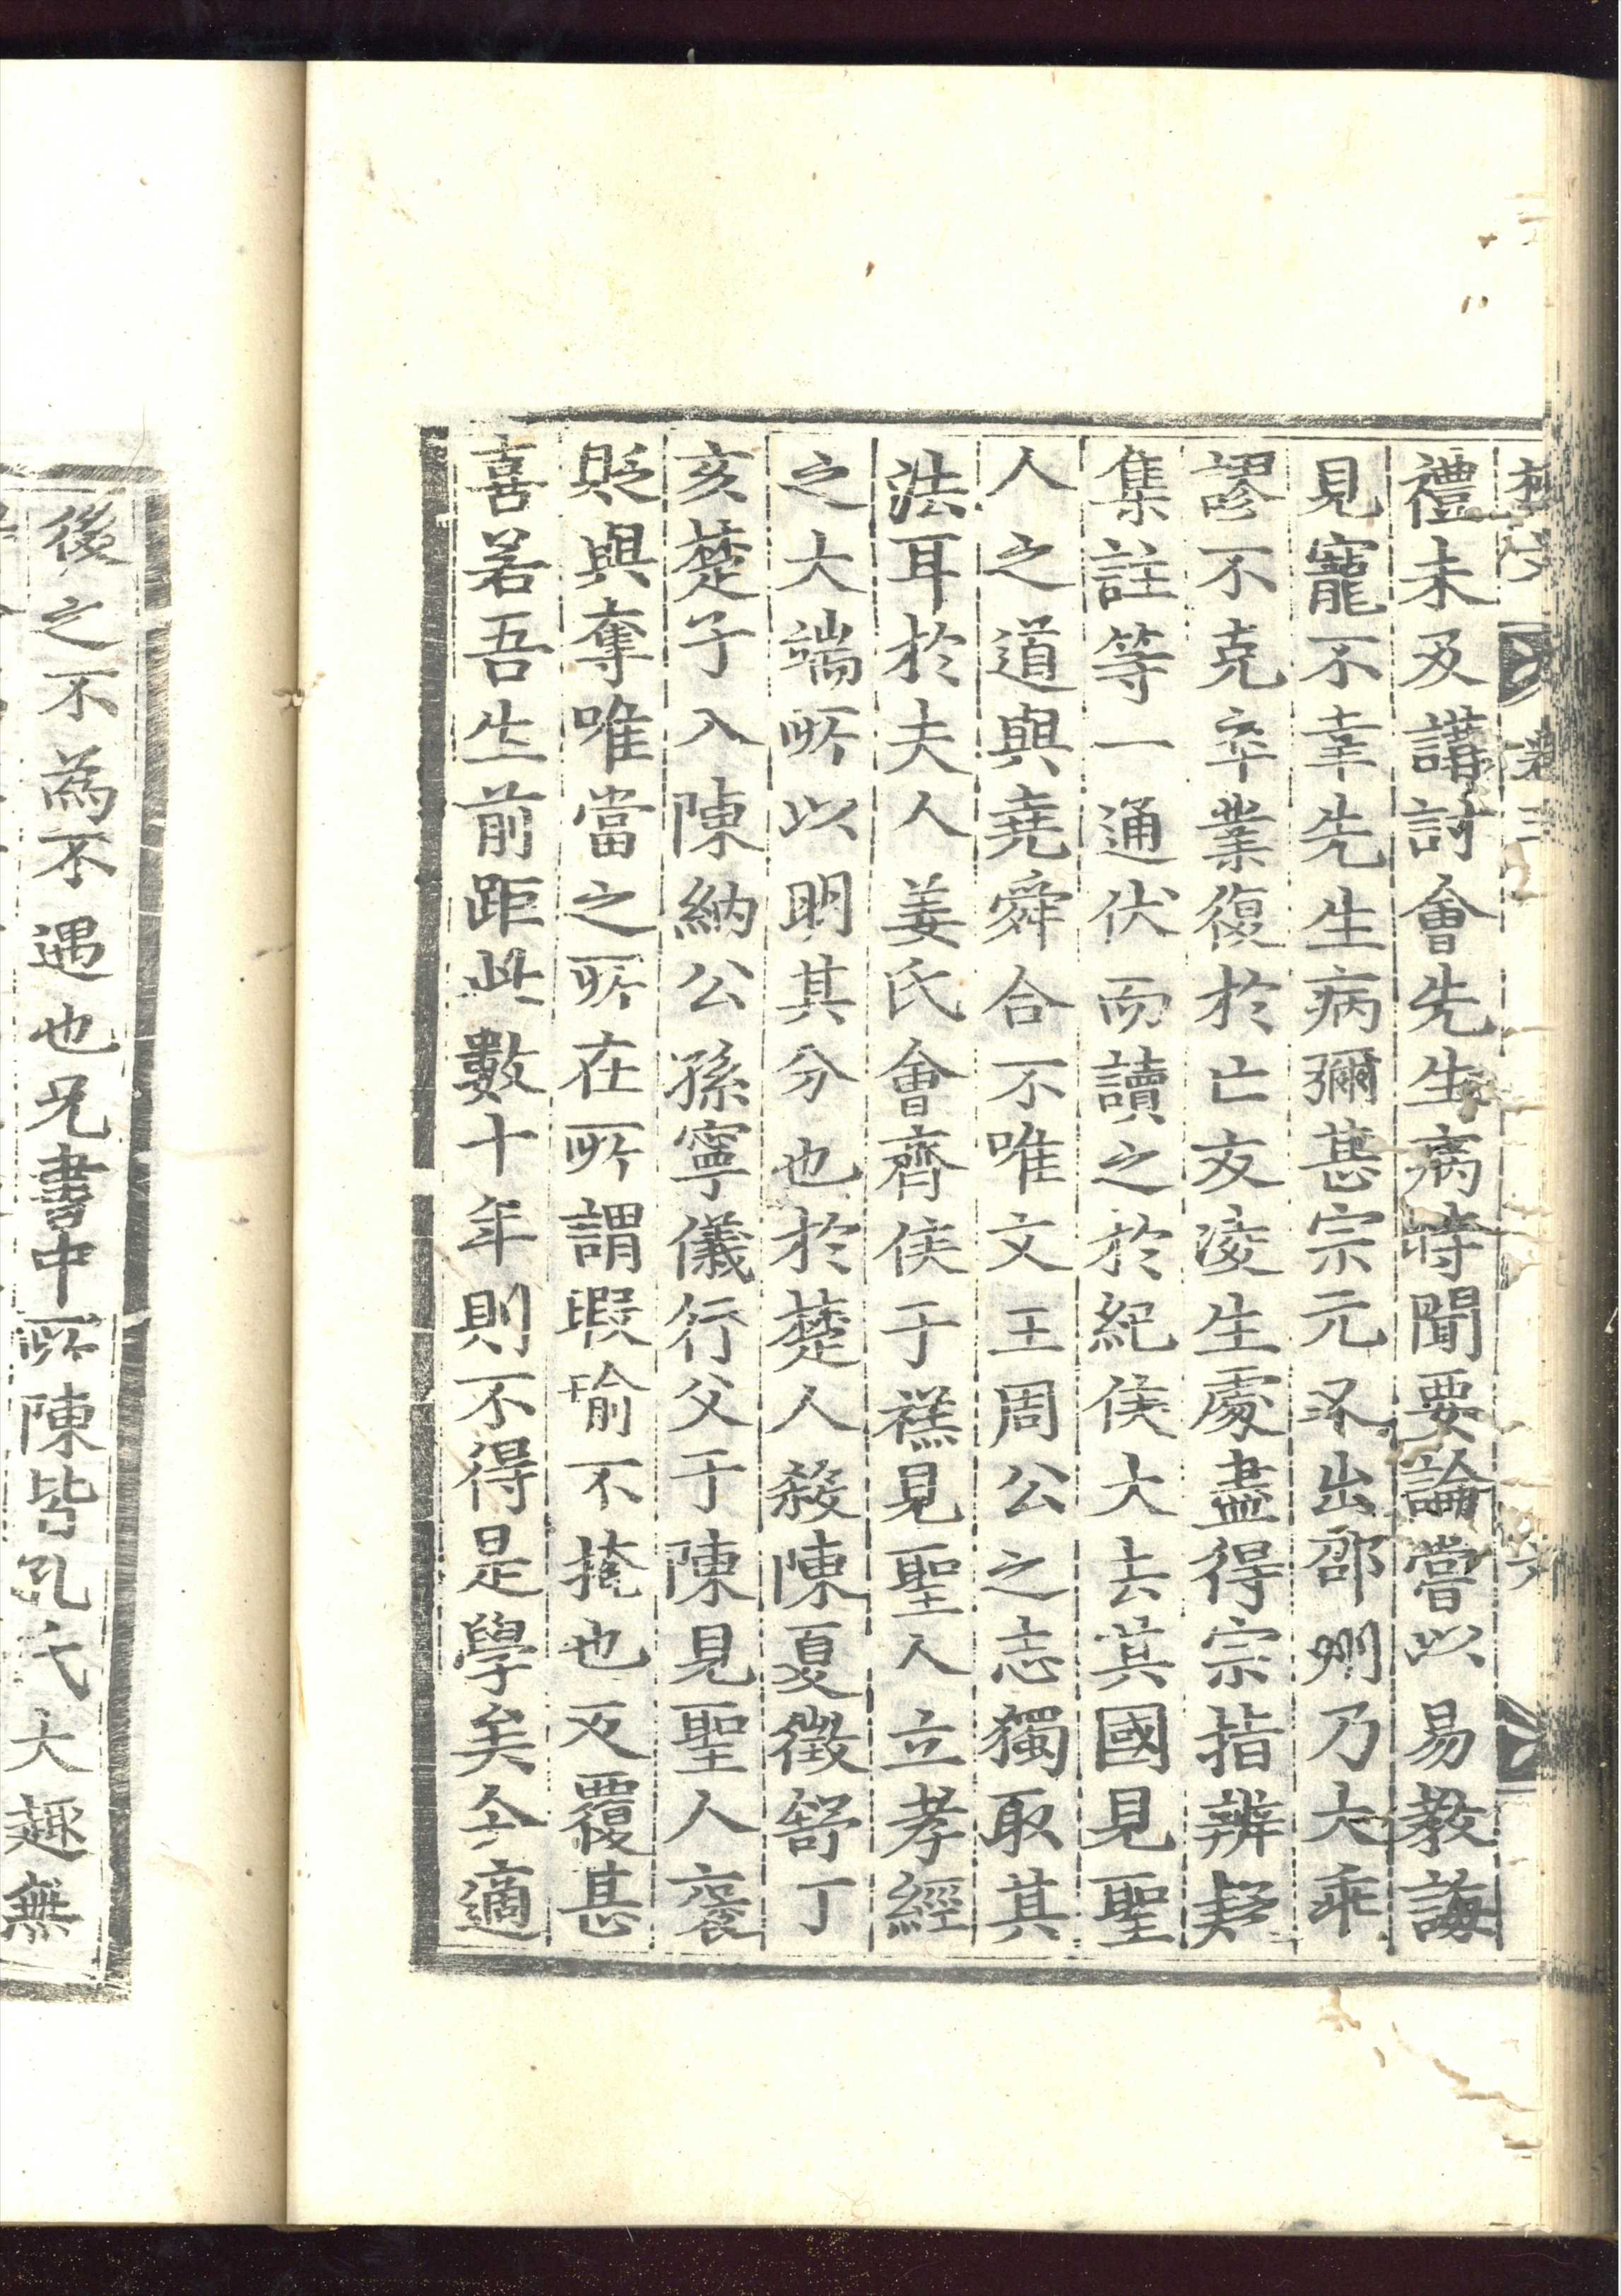 禮未及講討會先生病時聞要論嘗以易教誨
見寵不幸先生病彌甚宗元又出邵州乃大乖
謬不克卒業復於亡友凌生處盡得宗指辨疑
集註等一通伏而讀之於紀侯大去其國見聖
人之道與堯舜合不唯文王周公之志獨取其
法耳於夫人姜氏會齊侯于禚見聖人立孝經
之大端所以明其分也於楚人殺陳夏徵舒丁
亥楚子入陳納公孫寧儀行父于陳見聖人褒
貶與奪唯當之所在所謂瑕瑜不掩也反覆甚
喜若吾生前距此數十年則不得是學矣今適
後之不為不遇也兄書中所陳皆孔氏大趣無